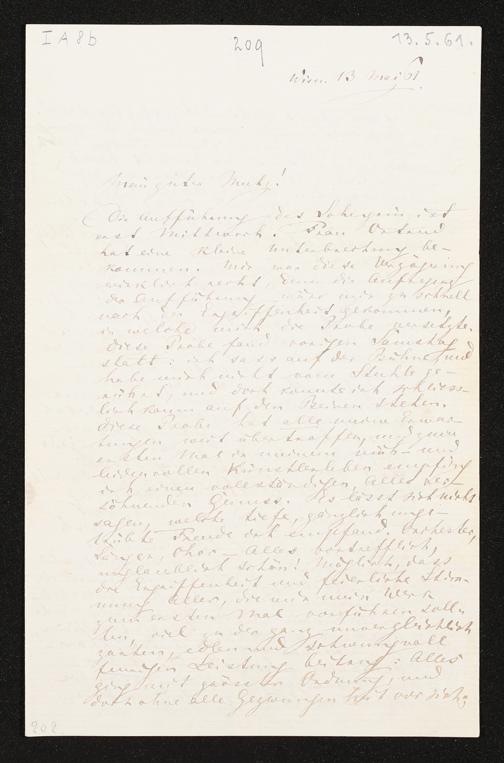 I A 8b 209 13.5.61.
Wien. 13 Mai 61.
Mein guter Mutz!
Die Aufführung des Lohengrin ist
erst Mittwoch. Frau
hat eine kleine Unterbrechung be-
kommen. Mir war diese
wirklich recht, denn die Aufregung
der Aufführung wäre mir zu schnell
nach der Ergriffenheit gekommen,
in welche mich die Probe versetzte.
Diese Probe fand vorigen Samstag
statt: ich sass auf der Bühne und
habe mich nicht vom Stuhle ge-
rührt, und doch konnte ich schliess-
lich kaum auf den Beinen stehen.
Diese Probe hat alle meine Erwar-
tungen weit übertroffen, und zum
ersten Mal in meinem müh- und
leidenvollen Künstlerleben empfing
ich einen vollständigen, Alles ver-
söhnenden Genuss. Es lässt sich nicht
sagen, welche tiefe, gänzlich unge-
trübte Freude ich empfand. Orchester,
Sänger, Chor - Alles vortrefflich,
unglaublich schön! Möglich, dass
die Ergriffenheit und feierliche Stim-
mung Aller, die mir mein Werk
zum ersten Mal vorführen soll-
ten, viel zu der ganz unvergleichlich
zarten, edlen und schwungvoll
feurigen Leistung beitrug: Alles
ging mit grösster Ordnung, und
doch ohne alle Gezwungenheit vor sich;
202